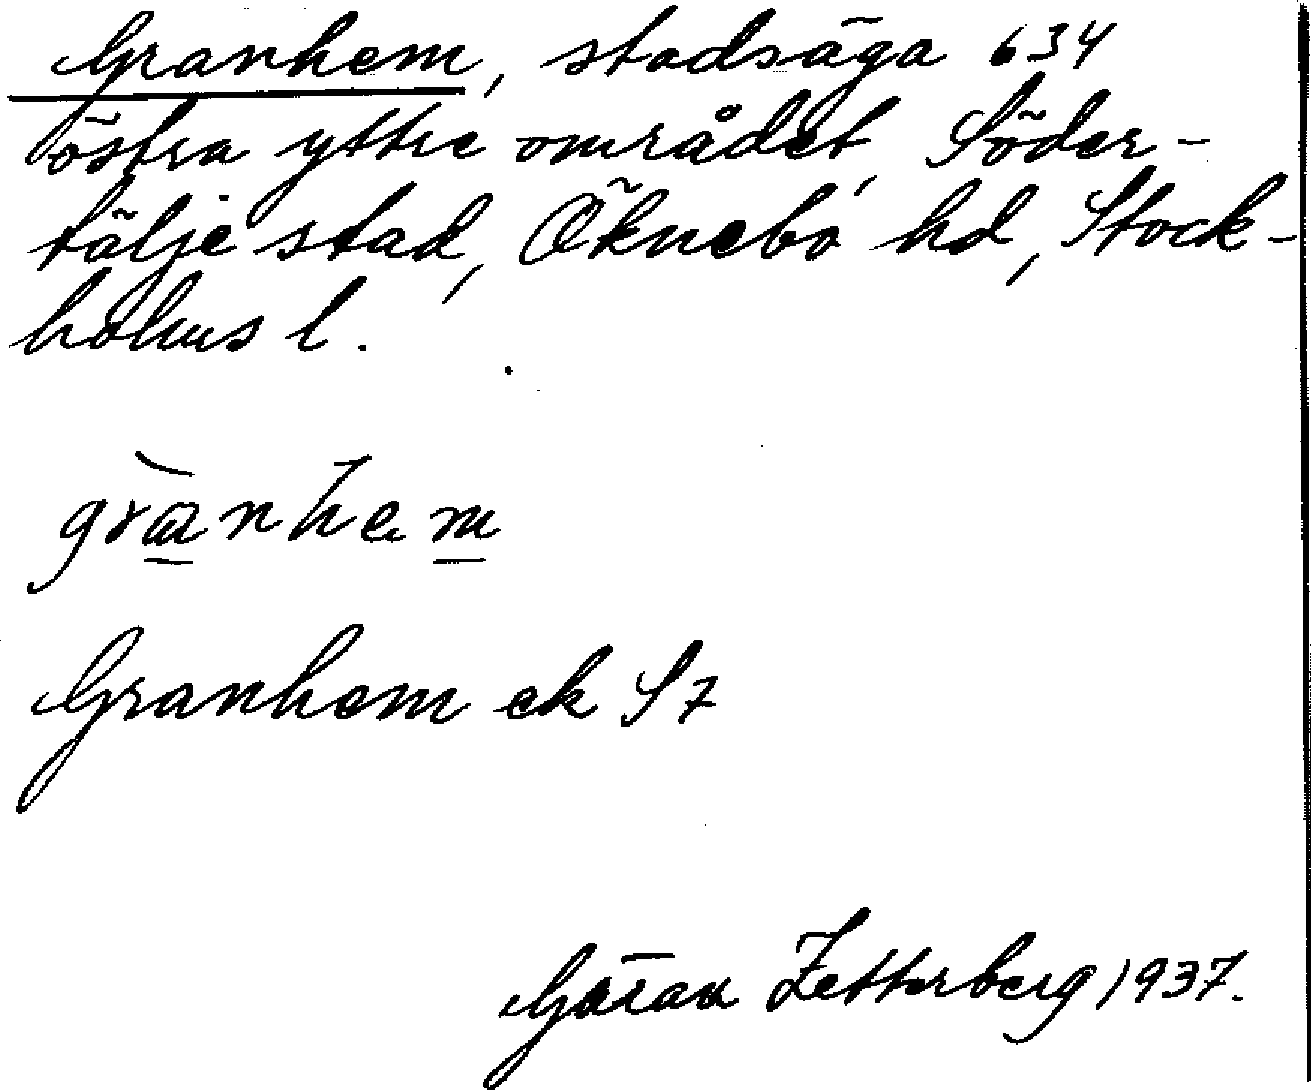 Granhem, stadsäga 634
östra yttre området, Söder-
tälje stad, Öknebo hd, Stock-
holms l.
grànhem
Granhem ek S7
Göran Zetterberg 1937.